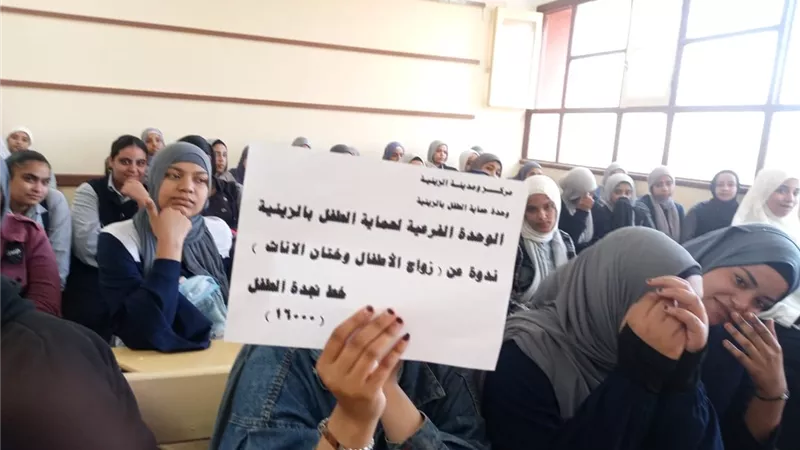 مركز ومدينة الزينية
وحدة حماية الطفل بالزينية
الوحدة الفرعية لحماية الطفل بالزينية
ندوة عن ( زواج الأطفال وختان الاناث )
خط نجدة الطفل
( ١٦٠٠٠ )